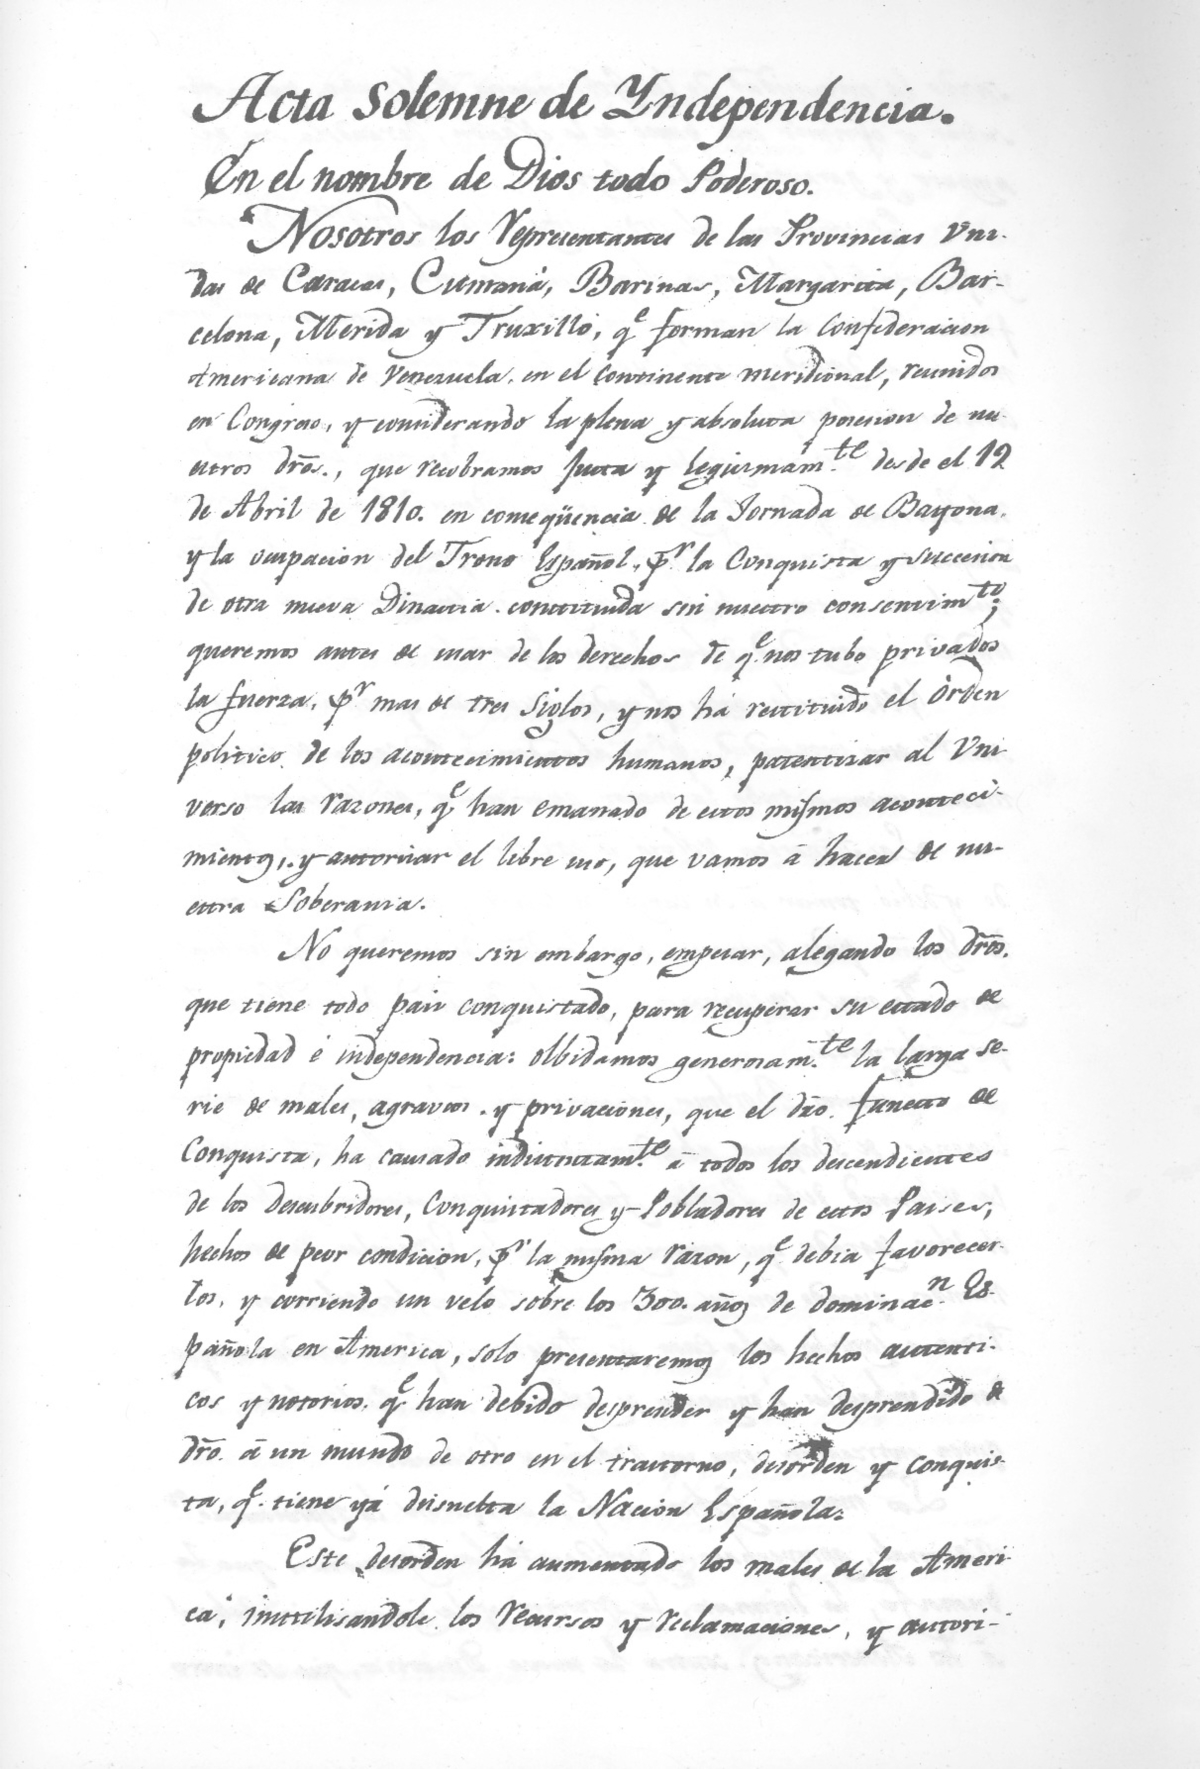 Acta Solemne de Yndependencia.
En el nombre de Dios todo Poderoso.
Nosotros los Representantes de las Provincias Vni-
das de Caracas, Cumaná, Barinas, Margarita, Bar-
celona, Merida y Truxillo, q.e forman la Confederacion
Americana de Venezuela, en el Continente meridional, reunidos
en Congreso, y considerando la plena y absoluta posesion de nu-
estros dr̃os., que recobramos justa y legitimam.te desde el 19
de Abril de 1810. en conseqüencia de la Jornada de Bayona,
y la ocupacion del Trono Español, p.r la Conquista y succesion
de otra nueva Dinastia. constituida sin nuestro consentim.to;
queremos antes de usar de los derechos de q.e nos tubo privados
la fuerza, p.r mas de tres siglos, y nos há restituido el Orden
politico de los acontecimientos humanos, patentizar al Vni-
verso las razones, q.e han emanado de estos mismos aconteci-
mientos, y autorizar el libre uso, que vamos á hacer de nu-
estra Soberania.
No queremos sin embargo, empezar, alegando los dr̃os.
que tiene todo pais conquistado, para recuperar su estado de
propiedad é independencia: olbidamos generosam.te la larga se-
rie de males, agravios y privaciones, que el dr̃o. funesto de
Conquista, ha causado indistintam.te á todos los descendientes
de los Descubridores, Conquistadores y Pobladores de estos Paises,
hechos de peor condicion, p.r la misma razon, q.e debia favorecer-
los, y corriendo un velo sobre los 300. años de dominac.n Es-
pañola en America, solo presentaremos los hechos autenti-
cos y notorios, q.e han debido desprender y han desprendido de
dr̃o. á un mundo de otro en el trastorno, desorden y conquis-
ta, q.e tiene yá disuelta la Nacion Española.
Este desorden há aumentado los males de la Ameri-
ca, inutilisandole los recursos y reclamaciones, y autori-